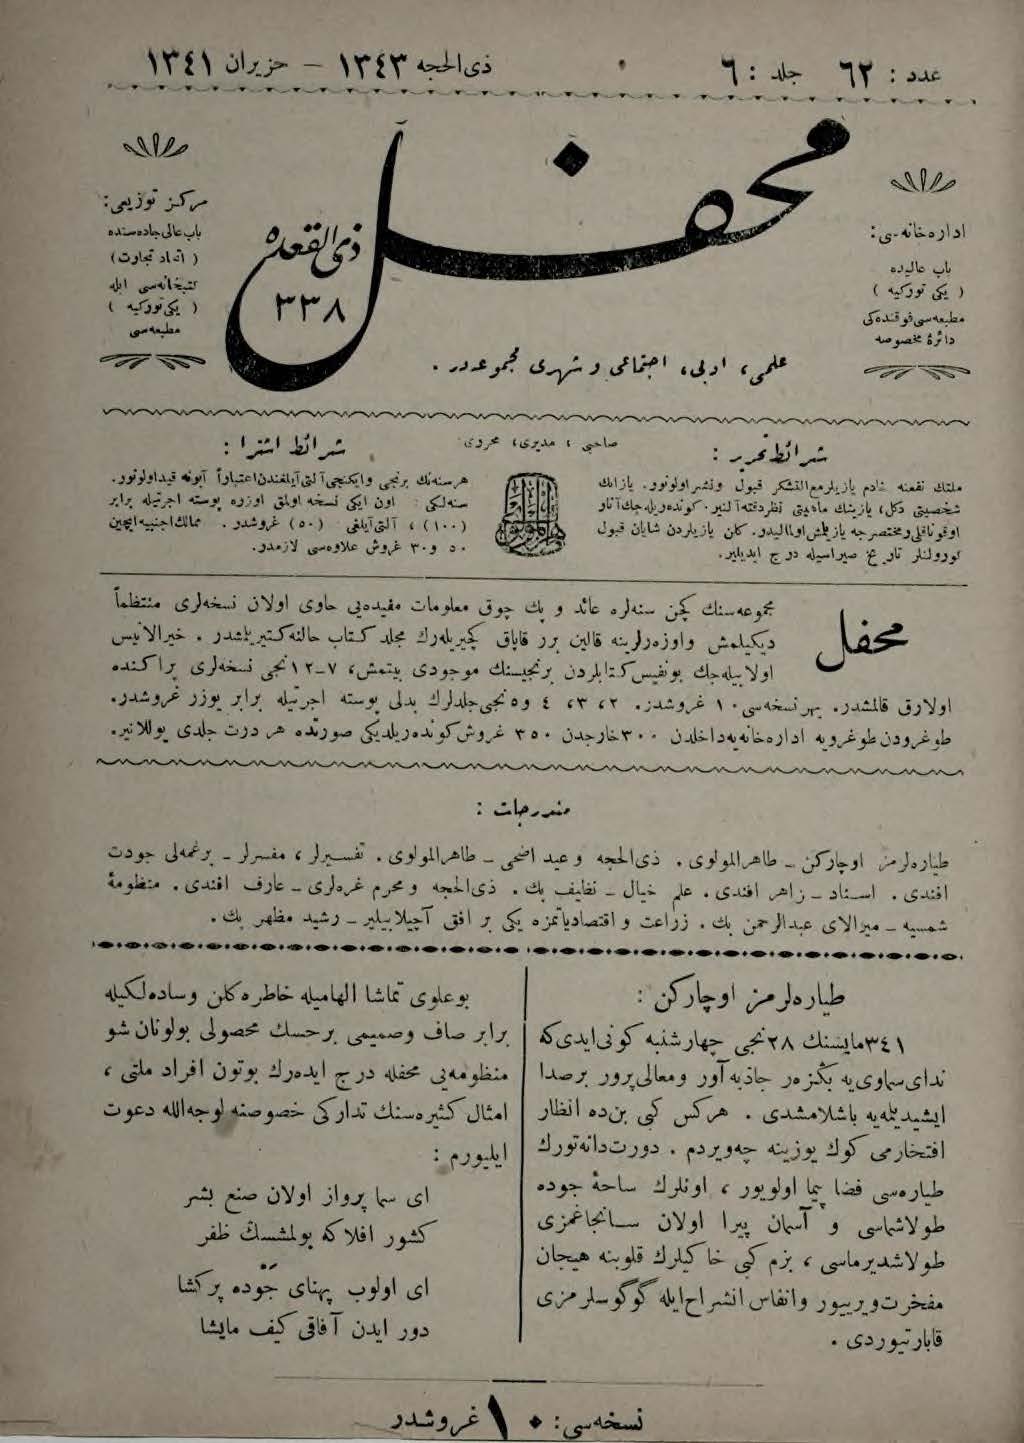 عدد : ٦٢ جلد : ٦
ذی‌الحجه ١٣٤٣ – حزیران ١٣٤١
اداره‌خانه‌-ی :
باب عالیده
( یکی تورکیه )
مطبعه‌سی فوقنده‌کی
دائرهٔ مخصوصه
محفل
ذی‌القعده
٣٣٨
مرکز توزیعی :
باب عالی جاده‌سنده
( اتحاد تجارت )
کتبخانه‌سی ایله
( یکی تورکیه )
مطبعه‌سی
علمی ، ادبی ، اجتماعی و شهری مجموعه‌در .
شرائط تحریر :
ملتك نفعنه خادم یازیلر مع‌التشکر قبول ونشر اولونور. یازانك
شخصیتی دکل، یازینك مادیتی نظر دقته آلنیر. کونده‌ریله‌جك آثار
اوقوناقلی ومختصرجه یازیلمش اولمالیدر. کلن یازیلردن شایان قبول
کورولنلر تاریخ صیراسیله درج ایدیلیر.
صاحبی ، مدیری، محرری
شرائط اشترا :
هرسنه‌نك برنجی وایکنجی آلتی آیلغندن اعتباراً آبونه قید اولونور.
سنه‌لکی : اون ایکی نسخه اولمق اوزره پوسته اجرتیله برابر
(١٠٠) ، آلتی آیلغی (٥٠) غروشدر . ممالك اجنبیه ایچین
٥٠ و ٣٠ غروش علاوه‌سی لازمدر.
محفل
مجموعه‌سنك کچن سنه‌لره عائد و پك چوق معلومات مفیده‌یی حاوی اولان نسخه‌لری منتظماً
دیکیلمش واوزه‌رلرینه قالین برر قاپاق کچیریله‌رك مجلد کتاب حالنه کتیریلمشدر . خیرالانیس
اولابیله‌جك بونفیس کتابلردن برنجیسنك موجودی بیتمش، ٧-١٢نجی نسخه‌لری پراکنده
اولارق قالمشدر. بهر نسخه‌سی ١٠ غروشدر. ٢، ٣، ٤ و٥نجی جلدلرك بدلی پوسته اجرتیله برابر یوزر غروشدر.
طوغرودن طوغرویه اداره‌خانه‌یه داخلدن ٣٠٠ خارجدن ٣٥٠ غروش کونده‌ریلدیکی صورتده هر درت جلدی یوللانیر.
مندرجات :
طیاره‌لرمز اوچارکن – طاهرالمولوی . ذی‌الحجه وعید اضحی – طاهرالمولوی . تفسیرلر ، مفسرلر – برغمه‌لی جودت
افندی . اسناد – زاهر افندی . علم خیال – نظیف بك . ذی‌الحجه ومحرم غره‌لری – عارف افندی . منظومهٔ
شمسیه – میرالای عبدالرحمن بك . زراعت و اقتصادیاتمزه یکی بر افق آچیلابیلیر – رشید مظهر بك .
طیاره‌لرمز اوچارکن :
٣٤١ مایسنك ٢٨نجی چهارشنبه کونی ایدی که
ندای سماوی‌یه بکزه‌ر جاذبه‌آور ومعالی‌پرور برصدا
ایشیدیلمه‌یه باشلامشدی . هرکس کبی بن‌ده انظار
افتخارمی کوك یوزینه چه‌ویردم . دورت‌دانه تورك
طیاره‌سی فضا پیما اولویور ، اونلرك ساحهٔ جوده
طولاشماسی و آسمان پیرا اولان سانجاغمزی
طولاشدیرماسی ، بزم کبی خاکیلرك قلوبنه هیجان
مفخرت‌ویرییور وانفاس انشراح‌ایله گوگوسلرمزی
قابارتیوردی .
بوعلوی تماشا الهامیله خاطره کلن وساده‌لکیله
برابر صاف وصمیمی برحسك محصولی بولونان شو
منظومه‌یی محفله درج ایده‌رك بوتون افراد ملتی ،
امثال کثیره‌سنك تدارکی خصوصنه لوجه‌الله دعوت
ایلیورم :
ای سما پرواز اولان صنع بشر
کشور افلاکه بولمشسك ظفر
ای اولوب پهنای جَوّده پرکشا
دور ایدن آفاقی کیف مایشا
نسخه‌سی : ١٠ غروشدر